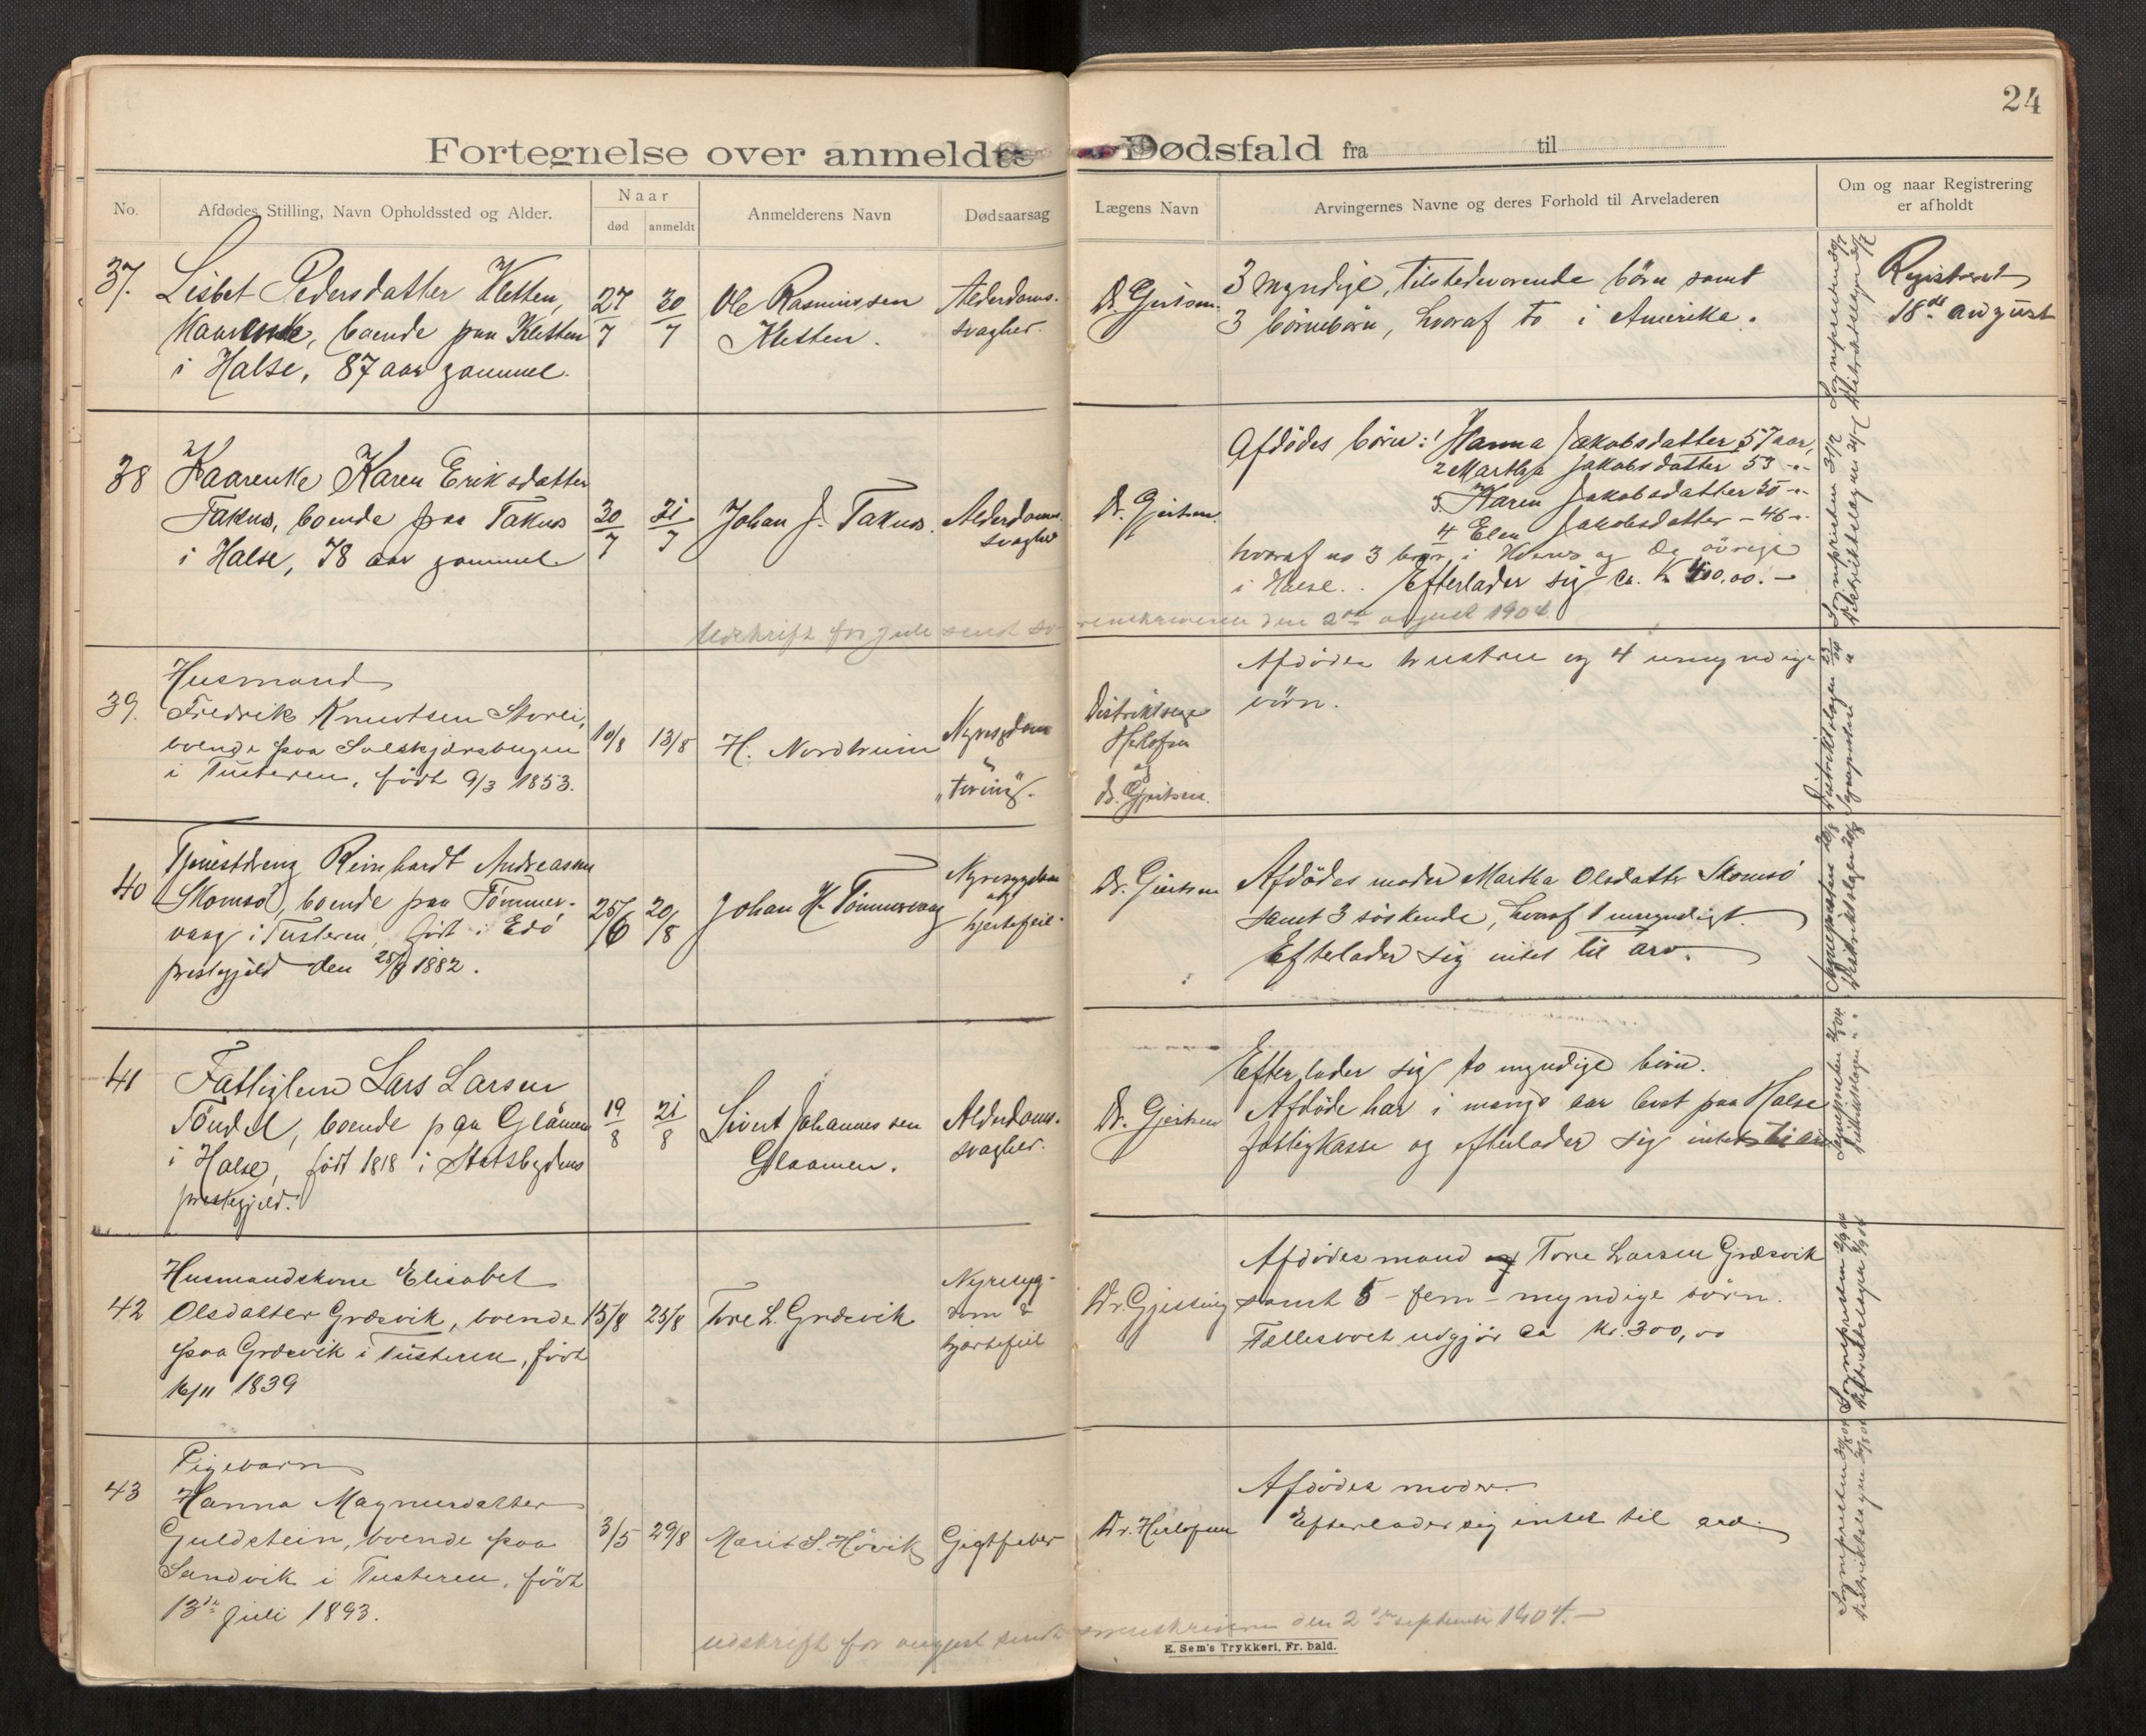 24
Fortegnelse over anmeldte Dødsfald fra til
No.
Afdødes Stilling, Navn Opholdssted og Alder.
Naar
død
anmeldt
Anmelderens Navn
Dødsaarsag
Lægens Navn
Arvingernes Navne og deres Forhold til Arveladeren
Om og naar Registrering
er afholdt
37.
Lisbet Pedersdatter Kletten,
Kaarenke, boende paa Kletten
i Halse, 87 aar gammel.
27/7
30/7
Ole Rasmussen
Kletten.
Alderdoms-
svaghed.
Dr. Gjertsen.
3 myndige, tilstedeværende börn samt
3 börnebörn, hvoraf to i Amerika.
Registreret
18de august
Sogneprästen 30/7
Distriktslægen 30/7
38
Kaarenke Karen Eriksdatter
Taknes, boende paa Taknes
i Halse, 78 aar gammel
30/7
31/7
Johan J. Taknes.
Alderdoms-
svaghed
Dr. Gjertsen.
Afdödes börn: 1 Hanna Jakobsdatter 57 aar,
2 Martha Jakobsdatter 53 -"-
3. Karen Jakobsdatter 50 -"-
4 Elen Jakobsdatter - 46 -"-
hvoraf no 3 bor i og de övrige
i Halse. Efterlader sig ca. Kr 400,00. -
Sogneprästen 31/7
Distriktslægen 31/7
Udskrift for juli sendt sorenskriveren den 2den august 1904.
39.
Husmand
Fredrik Knutsen Storli,
boende paa Solskjærsbugen
i Tusteren, född 9/3 1853.
10/8
13/8
H. Nordheim
Nyresygdom
&
"tæring".
Distriktslæge
Herlofsen
og
Dr. Gjertsen.
Afdödes hustru og 4 umyndige
börn.
Distriktslægen
Sogneprästen "
40
Tjenestdreng Reinhardt Andreassen
Skomsö, boende paa Tömmer-
vaag i Tusteren, född i Edö
prestegjeld den 28/9 1882.
25/6
20/8
Johan H. Tömmervaag
Nyresygdom
og
hjertefeil.
Dr. Gjertsen
Afdödes moder Martha Olsdatter Skomsö
samt 3 söskende, hvoraf 1 umyndigt.
Efterlader sig intet til arv.
Sogneprästen 20/8
Distriktslægen 20/8
41
Fattiglem Lars Larsen
Töndel, boende paa Glåmen
i Halse, född 1818 i Stadsbygdens
prestegjeld.
19/8
21/8
Sivert Johannessen
Glaamen.
Alderdoms-
svaghed.
Dr. Gjertsen
Efterlader sig to myndige börn.
Afdöde har i mange aar levet paa Halse
fattigkasse og efterlader sig intet til arv
Sogneprästen
Distriktslægen " "
42
Husmandskone Elisabet
Olsdatter Græsvik, boende
paa Græsvik i Tusteren, född
16/11 1839
15/8
25/8
Tore L. Græsvik
Nyresyg-
dom &
hjertefeil
Dr. Gjessing
Afdödes mand og Tore Larsen Græsvik
samt 5 - fem - myndige börn.
Fællesboet udgjör ca kr. 300,00
Sogneprästen
Distriktslægen
43
Pigebarn
Hanna Magnusdatter
Guldstein, boende paa
Sandvik i Tusteren, född
13de juli 1893.
3/5
29/8
Marit S. Hövik
Gigtfeber
Dr. Herlofsen
Afdödes moder.
Efterlader sig intet til arv.
Sogneprästen
Distriktslægen
Udskrift for august sendt sorenskriveren den 2den september 1904. -
E. Sem's Trykkeri, Fr.hald.